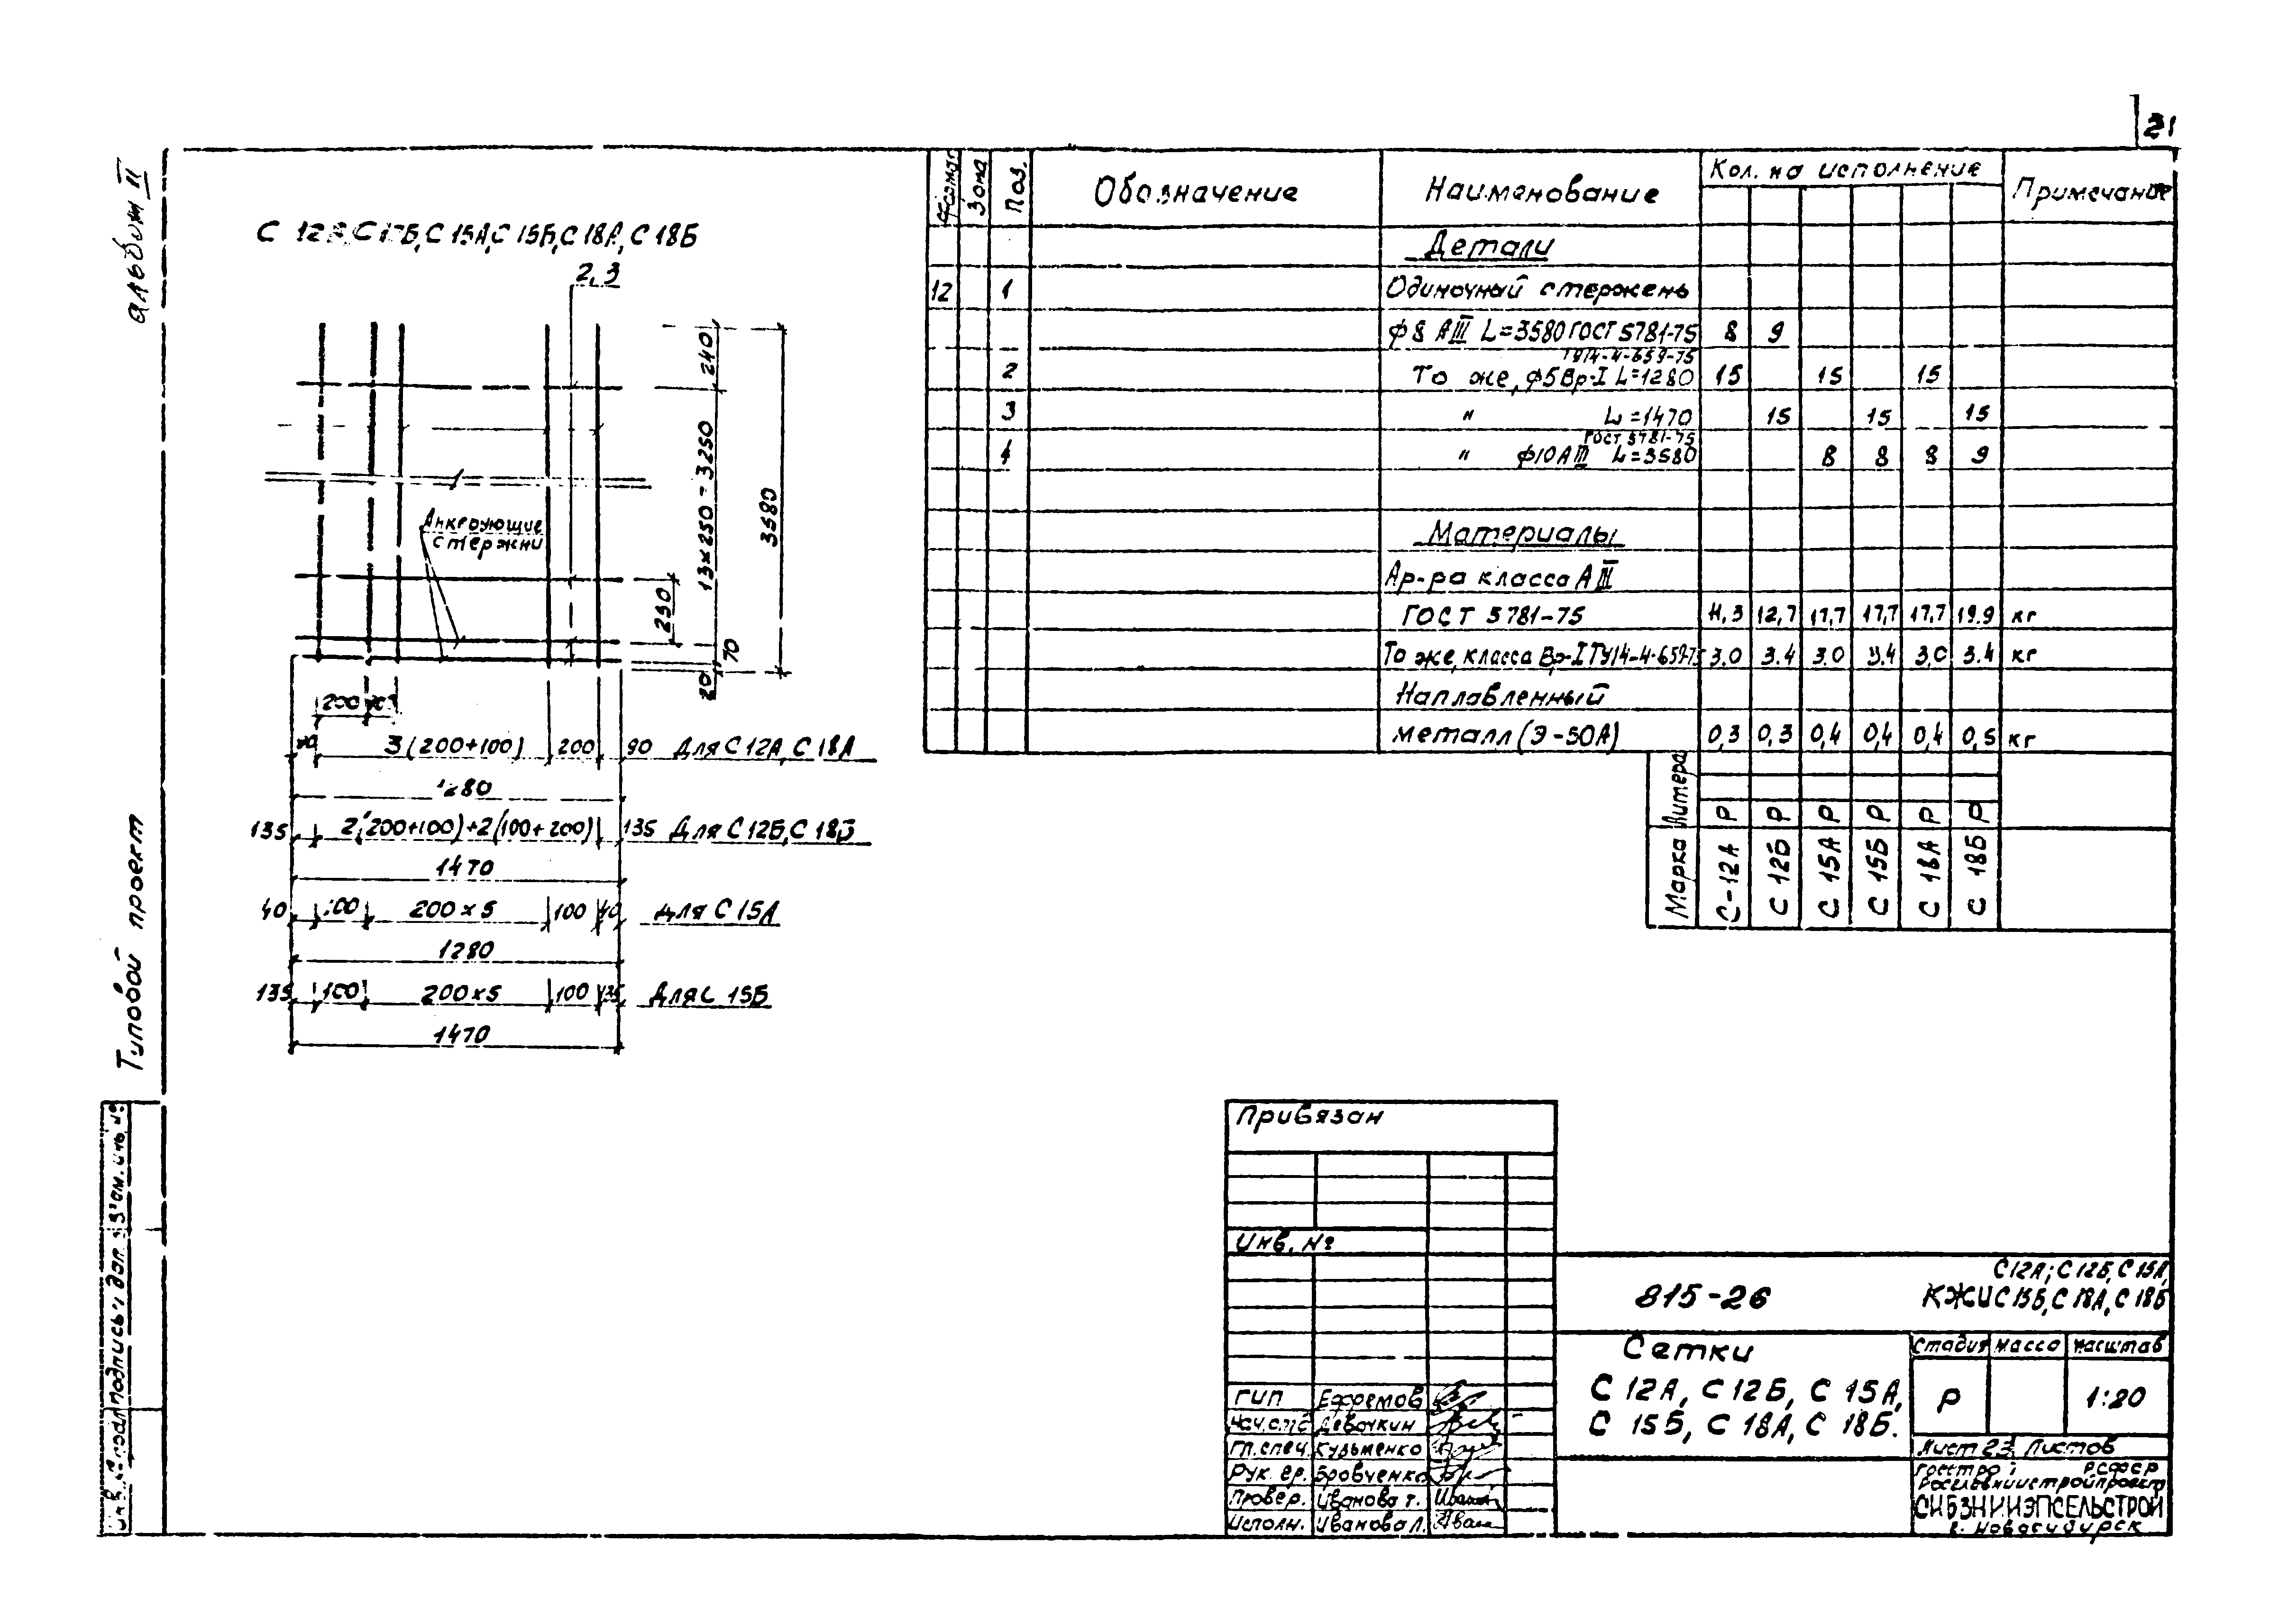 21
альбом II
Типовой проект
С 12А, С 12Б, С 15А, С 15Б, С 18А, С 18Б
2,3
240
13×250=3250
3580
230
70
20
Анкерующие
стержни
200
3(200+100) 200 90 Для С 12А, С 18А
1280
135 2(200+100)+2(100+200) 135 Для С 12Б, С 18Б
1470
40 100 200×5 100 40 для С 15А
1280
135 100 200×5 100 135 Для С 15Б
1470
Формат Зона Поз. Обозначение Наименование Кол. на исполнение Примечание
Детали
12 1 Одиночный стержень
ф8 АIII L=3580 ГОСТ 5781-75 8 9
ТУ14-4-659-75
2 То же, ф5Вр-I L=1280 15 15 15
3 " L=1470 15 15 15
ГОСТ 5781-75
4 " ф10АIII L=3580 8 8 8 9
Материалы
Ар-ра класса АIII
ГОСТ 5781-75 11,3 12,7 17,7 17,7 17,7 19.9 кг
То же, класса Вр-I ТУ14-4-659-75 3,0 3.4 3.0 3.4 3,0 3.4 кг
Наплавленный
металл (Э-50А) 0,3 0,3 0,4 0,4 0,4 0,5 кг
Литера Р Р Р Р Р Р
Марка С-12А С 12Б С 15А С 15Б С 18А С 18Б
Привязан
Инв. №
815-26
С12А; С 12Б, С 15А,
КЖИ С 15Б, С 18А, С 18Б
Сетки
С 12А, С 12Б, С 15А,
С 15Б, С 18А, С 18Б.
Стадия Масса Масштаб
Р 1:20
Лист 23 Листов
Госстрой РСФСР
Росглавниистройпроект
СИБЗНИИЭПСЕЛЬСТРОЙ
г. Новосибирск
ГИП Ефремов
Нач.отд Девочкин
Гл.спец. Кузьменко
Рук. гр. Бровченко
Провер. Иванова Т.
Исполн. Иванова Л.
Инв. № подл Подпись и дат. Взам. инв. №